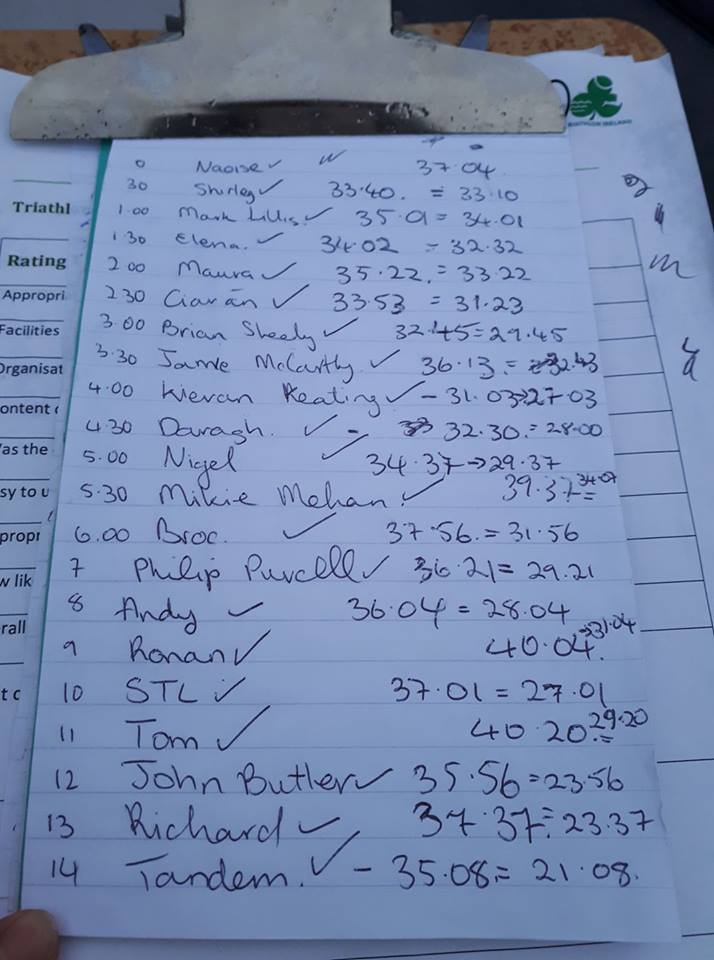 TRIATHLON IRELAND
Triathl
Rating
Appropri
Facilities
Organisat
ontent
as the
sy to u
propri
w lik
rall
t c
0 Naoise ✓ 37.04
30 Shirley ✓ 33.40. = 33.10
1.00 Mark Lillis. ✓ 35.01 = 34.01
1.30 Elena. ✓ 34.02 = 32.32
2.00 Maura ✓ 35.22. = 33.22
2.30 Ciarán ✓ 33.53 = 31.23
3.00 Brian Sheely ✓ 32.45 = 29.45
3.30 Jamie McCarthy ✓ 36.13. = 32.43
4.00 Kieran Keating ✓ - 31.03 → 27.03
4.30 Daragh. ✓ - 32.30. = 28.00
5.00 Nigel ✓ 34.37 → 29.37
5.30 Mikie Mehan ✓ 39.37 = 34.07
6.00 Broc. ✓ 37.56. = 31.56
7 Philip Purcell ✓ 36.21 = 29.21
8 Andy ✓ 36.04 = 28.04
9 Ronan ✓ 40.04. → 31.04
10 STL ✓ 37.01 = 27.01
11 Tom ✓ 40.20. = 29.20
12 John Butler ✓ 35.56 = 23.56
13 Richard ✓ 37.37. = 23.37
14 Tandem. ✓ - 35.08 = 21.08.